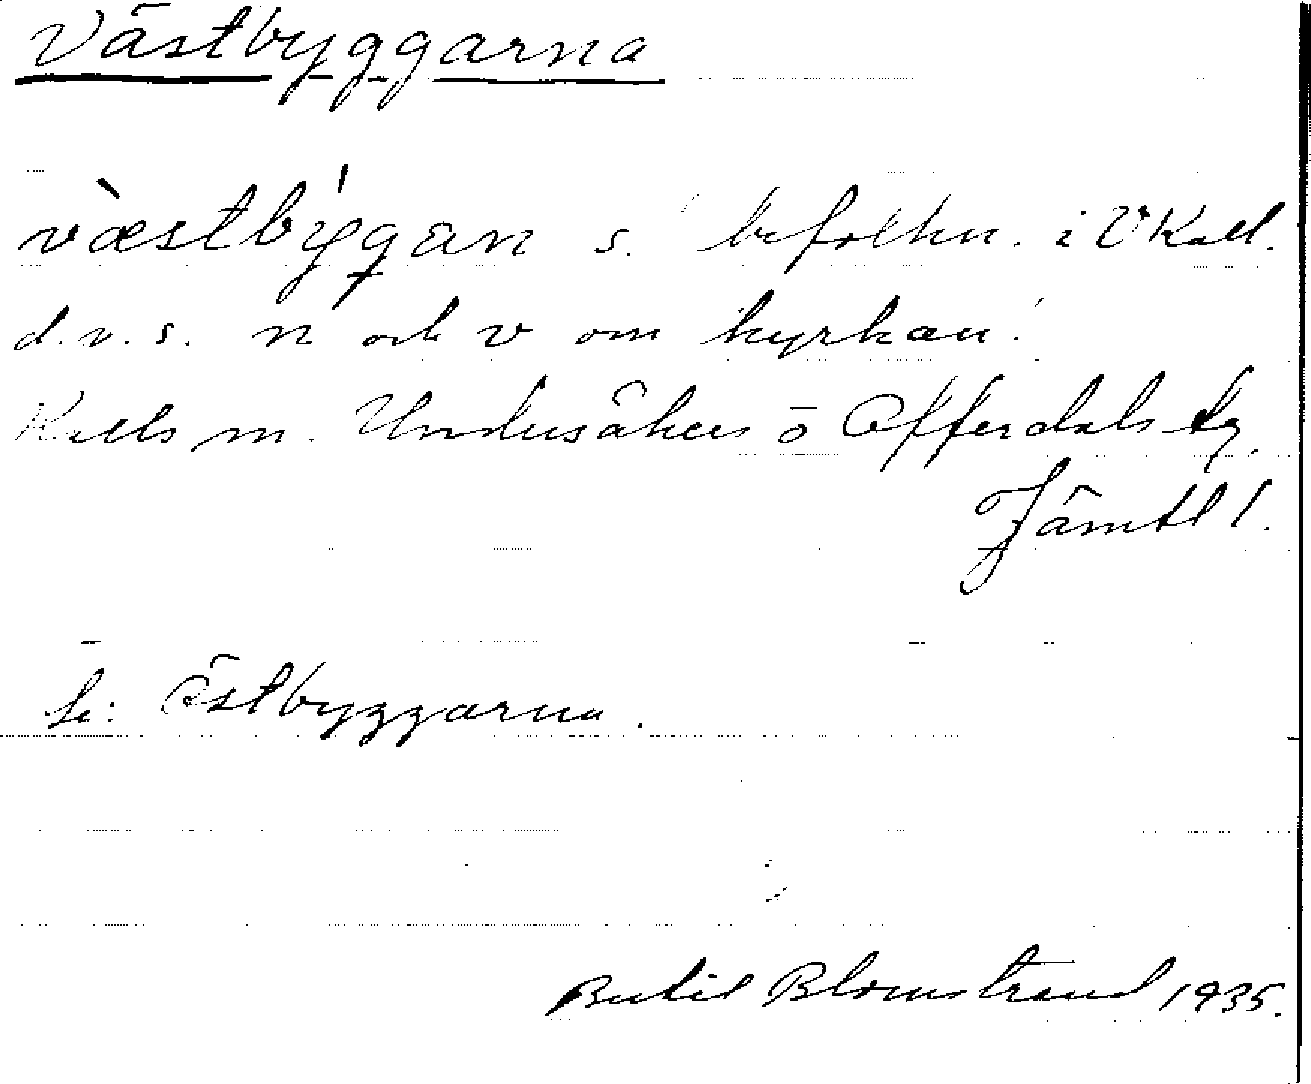 Västbyggarna
væ̀stbýgan s. befolkn. i V Kall.
d.v.s. n och v om kyrkan.
Kalls sn. Undersåkers o Offerdals tg.
Jämtl l.
Se: Östbyggarna.
Bertil Blomstrand 1935.